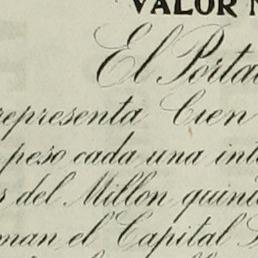 VALOR N
El Porta
representa Cien
peso cada una int
s del Millon quini
man el Capital